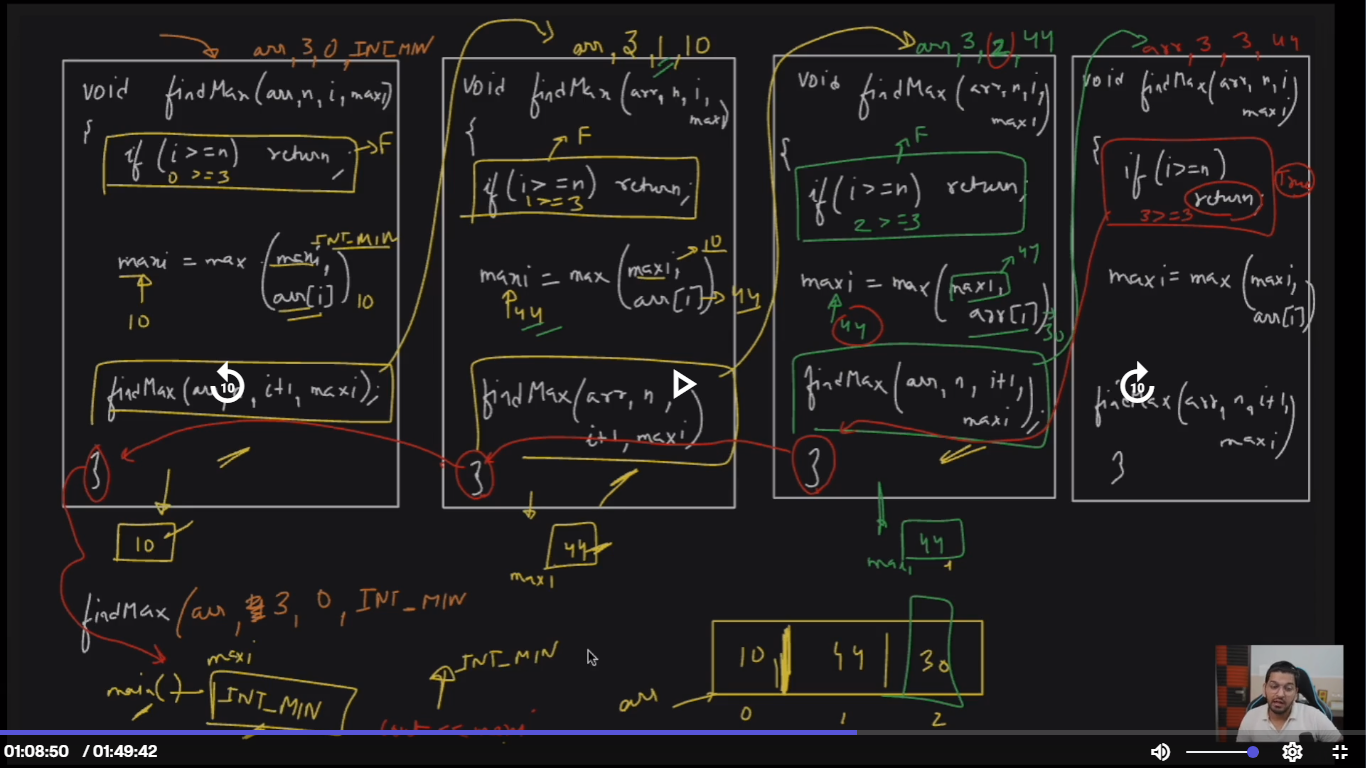 arr, 3, 0, INT_MIN
void findMax(arr, n, i, maxi)
{
if (i >= n) return;
0 >= 3
F
INT_MIN
maxi = max (maxi,
arr[i])
10
10
findMax(arr, n, i+1, maxi);
10
}
10
arr, 3, 1, 10
void findMax(arr, n, i,
maxi)
{
F
if (i >= n) return;
1 >= 3
10
maxi = max (maxi,
arr[i])
44
44
findMax(arr, n,
i+1, maxi)
}
44
maxi
arr, 3, 2, 44
void findMax(arr, n, i,
maxi)
{
F
if (i >= n) return;
2 >= 3
44
maxi = max (maxi,
arr[i])
30
44
findMax(arr, n, i+1,
maxi);
}
44
maxi
arr, 3, 3, 44
void findMax(arr, n, i
maxi)
{
if (i >= n)
return;
3 >= 3
True
maxi = max (maxi,
arr[i])
10
findMax(arr, n, i+1,
maxi)
}
findMax(arr, 3, 0, INT_MIN
maxi
main()
INT_MIN
INT_MIN
arr
10, 44 30
0 1 2
01:08:50 / 01:49:42